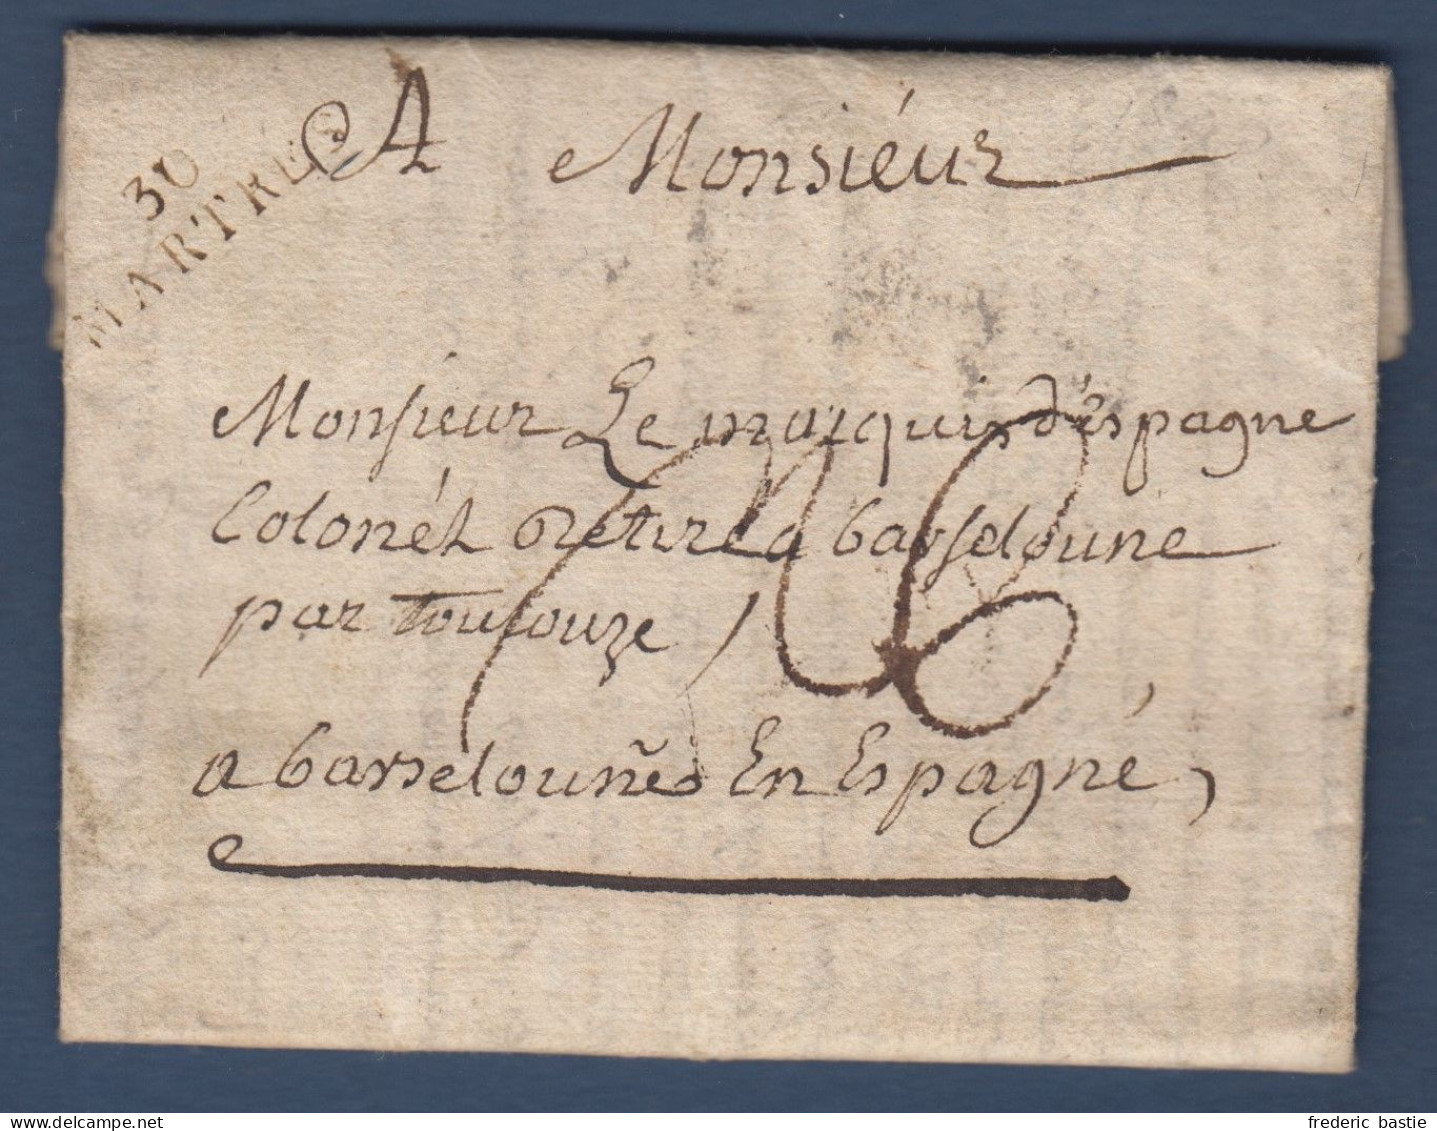 30
MARTRES
A Monsiéur
Monsieur Le marquis d'éspagne
Colonél Retiré a barseloune
par toulouze
a barselouñe En Espagné,
delcampe.net
frederic bastie